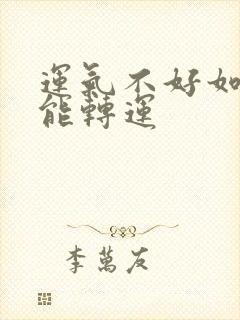 運氣不好如
能轉運
李萬友